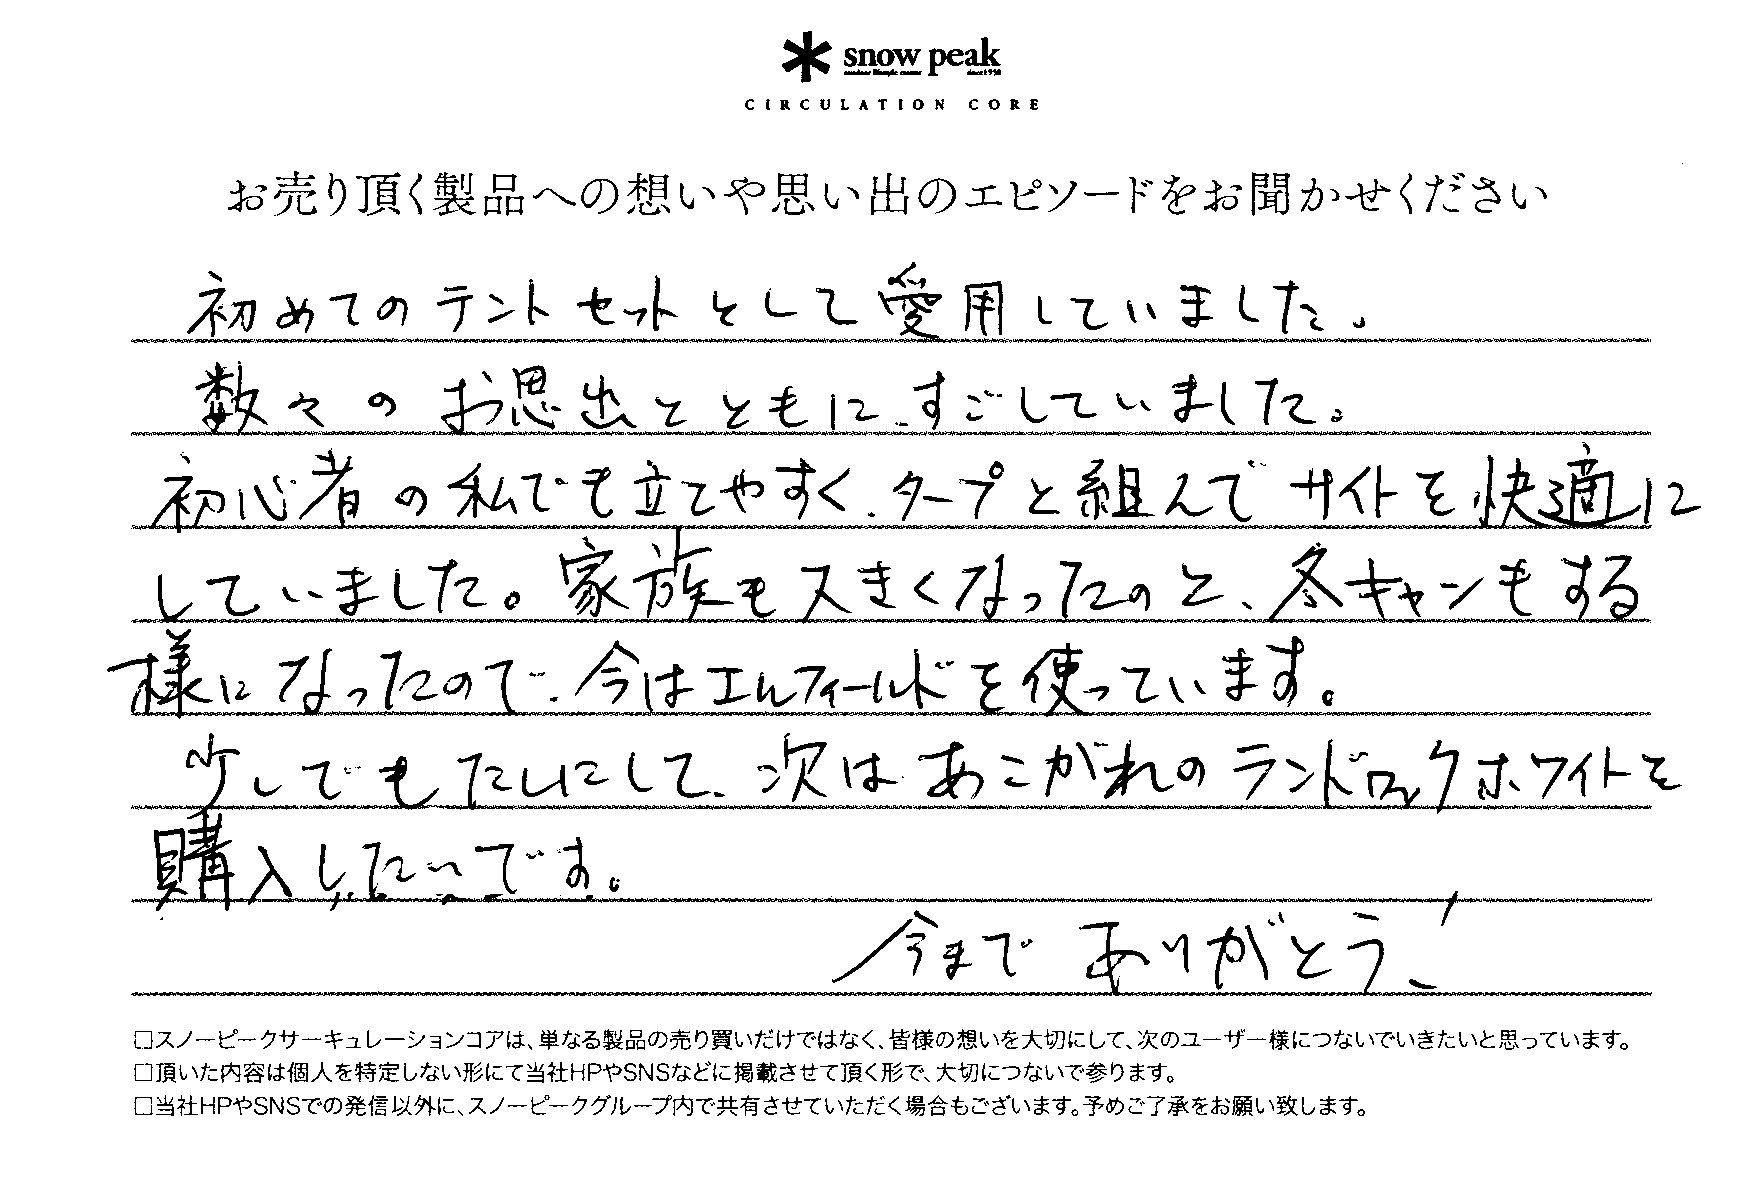 snow peak
outdoor lifestyle creator since1958
CIRCULATION CORE
お売り頂く製品への想いや思い出のエピソードをお聞かせください
初めてのテントセットとして愛用していました。
数々のお思出とともに、すごしていました。
初心者の私でも立てやすく、タープと組んでサイトを快適に
していました。家族も大きくなったのと、冬キャンもする
様になったので、今はエルフィールドを使っています。
少しでもたしにして、次はあこがれのランドロックホワイトを
購入したいです。
今まで ありがとう!
□スノーピークサーキュレーションコアは、単なる製品の売り買いだけではなく、皆様の想いを大切にして、次のユーザー様につないでいきたいと思っています。
□頂いた内容は個人を特定しない形にて当社HPやSNSなどに掲載させて頂く形で、大切につないで参ります。
□当社HPやSNSでの発信以外に、スノーピークグループ内で共有させていただく場合もございます。予めご了承をお願い致します。